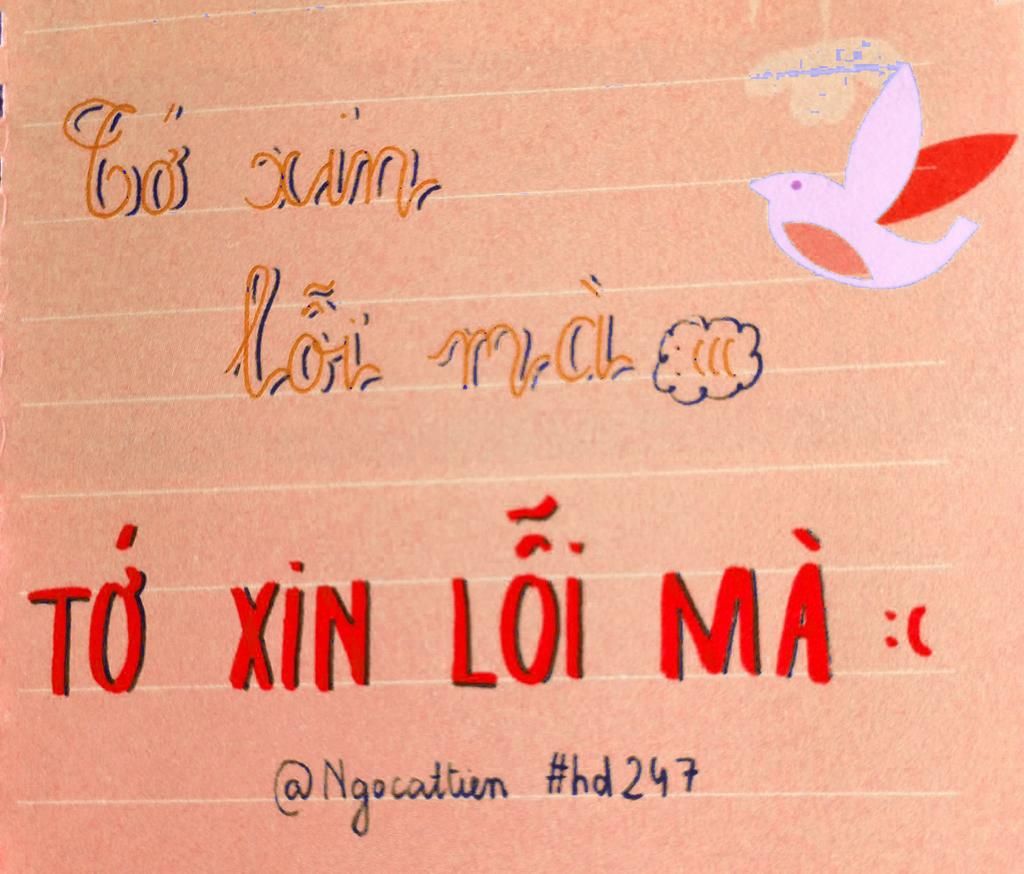 Tớ xin
lỗi mà :(((
TỚ XIN LỖI MÀ :(
@Ngocattien #hd247